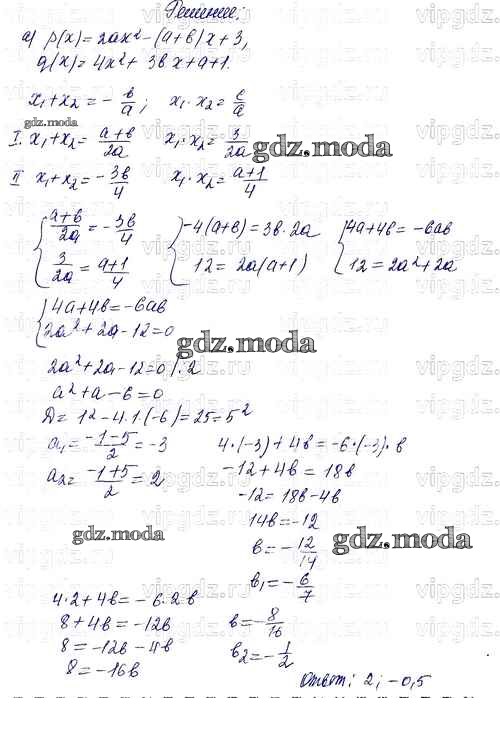 Решение:
а) p(x)=2ax²-(a+b)x+3,
q(x)=4x²+3bx+a+1.
x₁+x₂=-b/a; x₁·x₂=c/a
gdz.moda
I. x₁+x₂=(a+b)/2a x₁·x₂=3/2a
gdz.moda
II x₁+x₂=-3b/4 x₁·x₂=(a+1)/4
{(a+b)/2a=-3b/4 {-4(a+b)=3b·2a {4a+4b=-6ab
3/2a=(a+1)/4 12=2a(a+1) 12=2a²+2a
{4a+4b=-6ab
2a²+2a-12=0
gdz.moda
2a²+2a-12=0/:2
a²+a-6=0
D=1²-4·1(-6)=25=5²
a₁=(-1-5)/2=-3 4·(-3)+4b=-6·(-3)·b
a₂=(-1+5)/2=2 -12+4b=18b
-12=18b-4b
14b=-12
gdz.moda
b=-12/14
gdz.moda
b₁=-6/7
4·2+4b=-6·2b b=-8/16
8+4b=-12b
8=-12b-4b b₂=-1/2
8=-16b
Ответ: 2; -0,5
vipgdz.ru